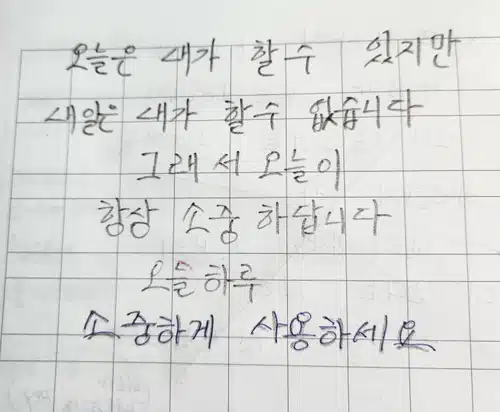 오늘은 내가 할 수 있지만
새일은 내가 할 수 없습니다
그래서 오늘이
항상 소중 하답니다
오늘 하루
소중하게 사용하세요